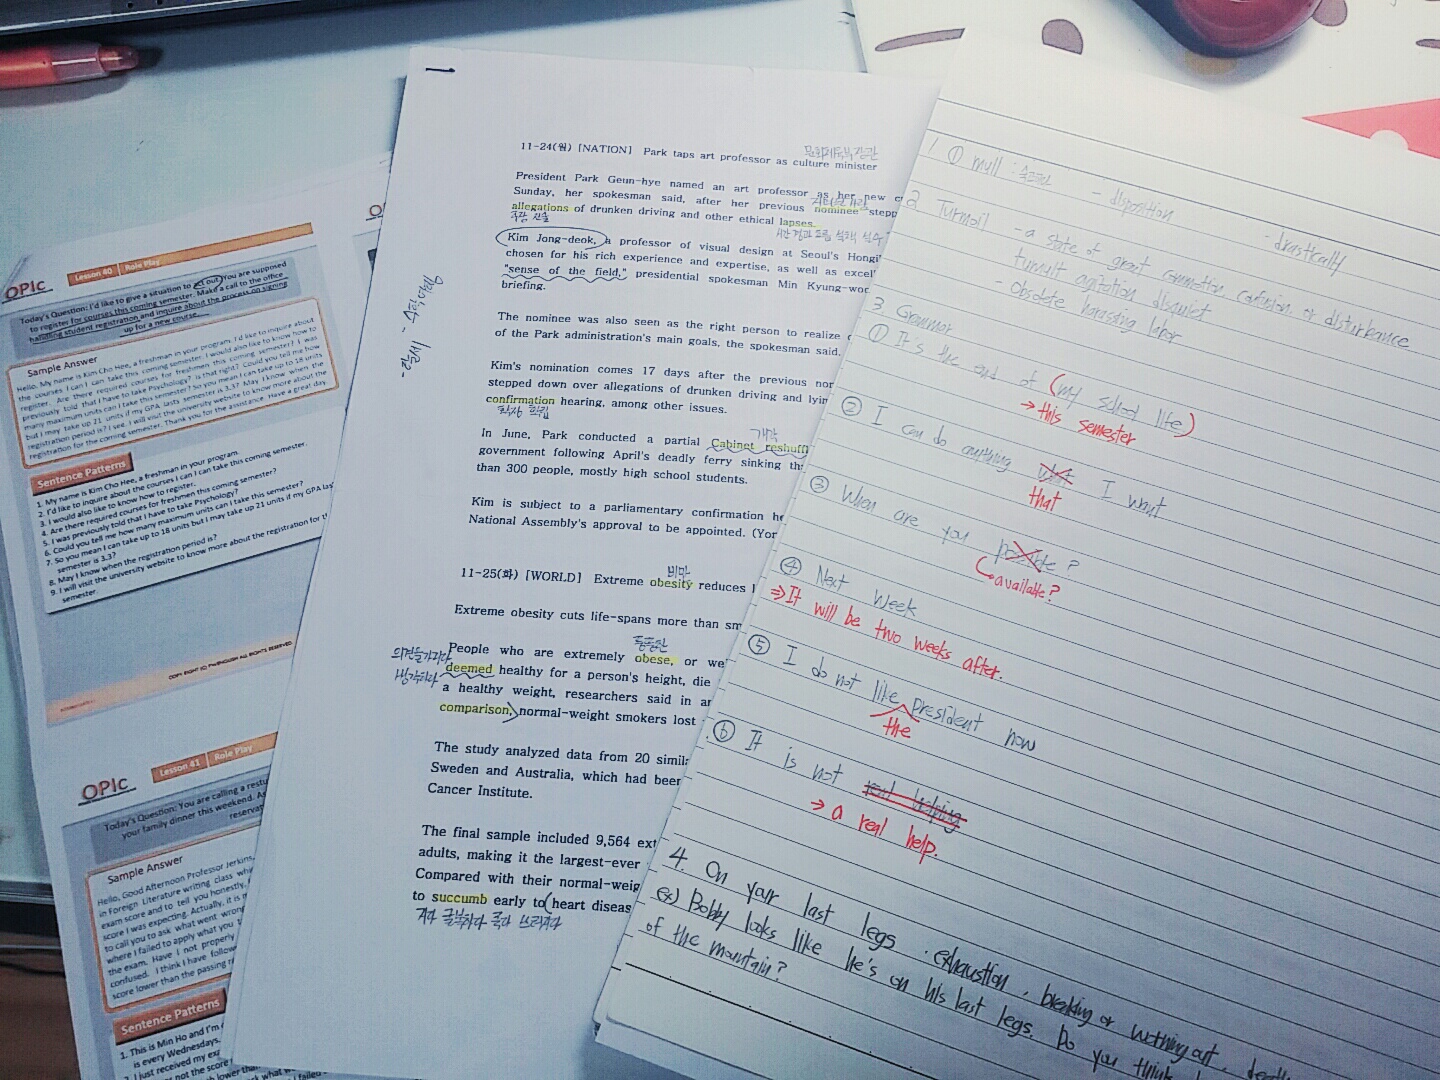 OPIc
Lesson 40 Role Play
Today's Question: I'd like to give a situation to act out. You are supposed
to register for courses this coming semester. Make a call to the office
handling student registration and inquire about the process on signing
up for a new course.
Sample Answer
Hello. My name is Kim Cho Hee, a freshman in your program. I'd like to inquire about
the courses I can I can take this coming semester. I would also like to know how to
register. Are there required courses for freshmen this coming semester? I was
previously told that I have to take Psychology. Is that right? Could you tell me how
many maximum units can I take this semester? So you mean I can take up to 18 units
but I may take up 21 units if my GPA lasts semester is 3.3? May I know when the
registration period is? I see. I will visit the university website to know more about the
registration for the coming semester. Thank you for the assistance. Have a great day.
Sentence Patterns
1. My name is Kim Cho Hee, a freshman in your program.
2. I'd like to inquire about the courses I can I can take this coming semester.
3. I would also like to know how to register.
4. Are there required courses for freshmen this coming semester?
5. I was previously told that I have to take Psychology?
6. Could you tell me how many maximum units can I take this semester?
7. So you mean I can take up to 18 units but I may take up 21 units if my GPA las
semester is 3.3?
8. May I know when the registration period is?
9. I will visit the university website to know more about the registration for t
semester.
COPY RIGHT (C) ALL RIGHTS RESERVED.
OPIc
Lesson 41 Role Play
Today's Question: You are calling a resta
your family dinner this weekend. As
reservat
Sample Answer
Hello, Good Afternoon Professor Jerkins.
in Foreign Literature writing class whi
exam score and to tell you honestly,
score I was expecting. Actually, it is n
to call you to ask what went wron
where I failed to apply what you t
the exam. Have I not properly
confused. I think I have follow
score lower than the passing r
Sentence Patterns
1. This is Min Ho and I'm
is every Wednesdays.
2. I just received my ex
not the score
11-24(월) [NATION] Park taps art professor as culture minister
President Park Geun-hye named an art professor as her new c
Sunday, her spokesman said, after her previous nominee step
allegations of drunken driving and other ethical lapses.
주장 진술
Kim Jong-deok, a professor of visual design at Seoul's Hongi
chosen for his rich experience and expertise, as well as excel
"sense of the field," presidential spokesman Min Kyung-woo
briefing.
The nominee was also seen as the right person to realize
of the Park administration's main goals, the spokesman said.
Kim's nomination comes 17 days after the previous nor
stepped down over allegations of drunken driving and lyin
confirmation hearing, among other issues.
확정 확립
개각
In June, Park conducted a partial Cabinet reshuffl
government following April's deadly ferry sinking th
than 300 people, mostly high school students.
Kim is subject to a parliamentary confirmation he
National Assembly's approval to be appointed. (Yon
비만
11-25(화) [WORLD] Extreme obesity reduces l
Extreme obesity cuts life-spans more than sm
뚱뚱한
People who are extremely obese, or we
deemed healthy for a person's height, die
생각하다
a healthy weight, researchers said in an
comparison, normal-weight smokers lost
The study analyzed data from 20 simila
Sweden and Australia, which had been
Cancer Institute.
The final sample included 9,564 ext
adults, making it the largest-ever
Compared with their normal-weig
to succumb early to (heart diseas
지다 굴복하다 죽다 쓰러지다
1 ① mull : 숙고하다 - disposition - drastically
2. Turmoil - a state of great commotion, confusion, or disturbance
tumult agitation disquiet
- obsolete harassing labor
3 Grammar
① It's the end of (my school life)
→ this semester
② I can do anything what I want
that
③ When are you possible?
available?
④ Next week
⇒ It will be two weeks after.
⑤ I do not like president now
the
⑥ It is not real helping
→ a real help.
4. On your last legs. exhaustion, breaking or wearing out, death
ex) Bobby looks like he's on his last legs. Do you think
of the mountain?